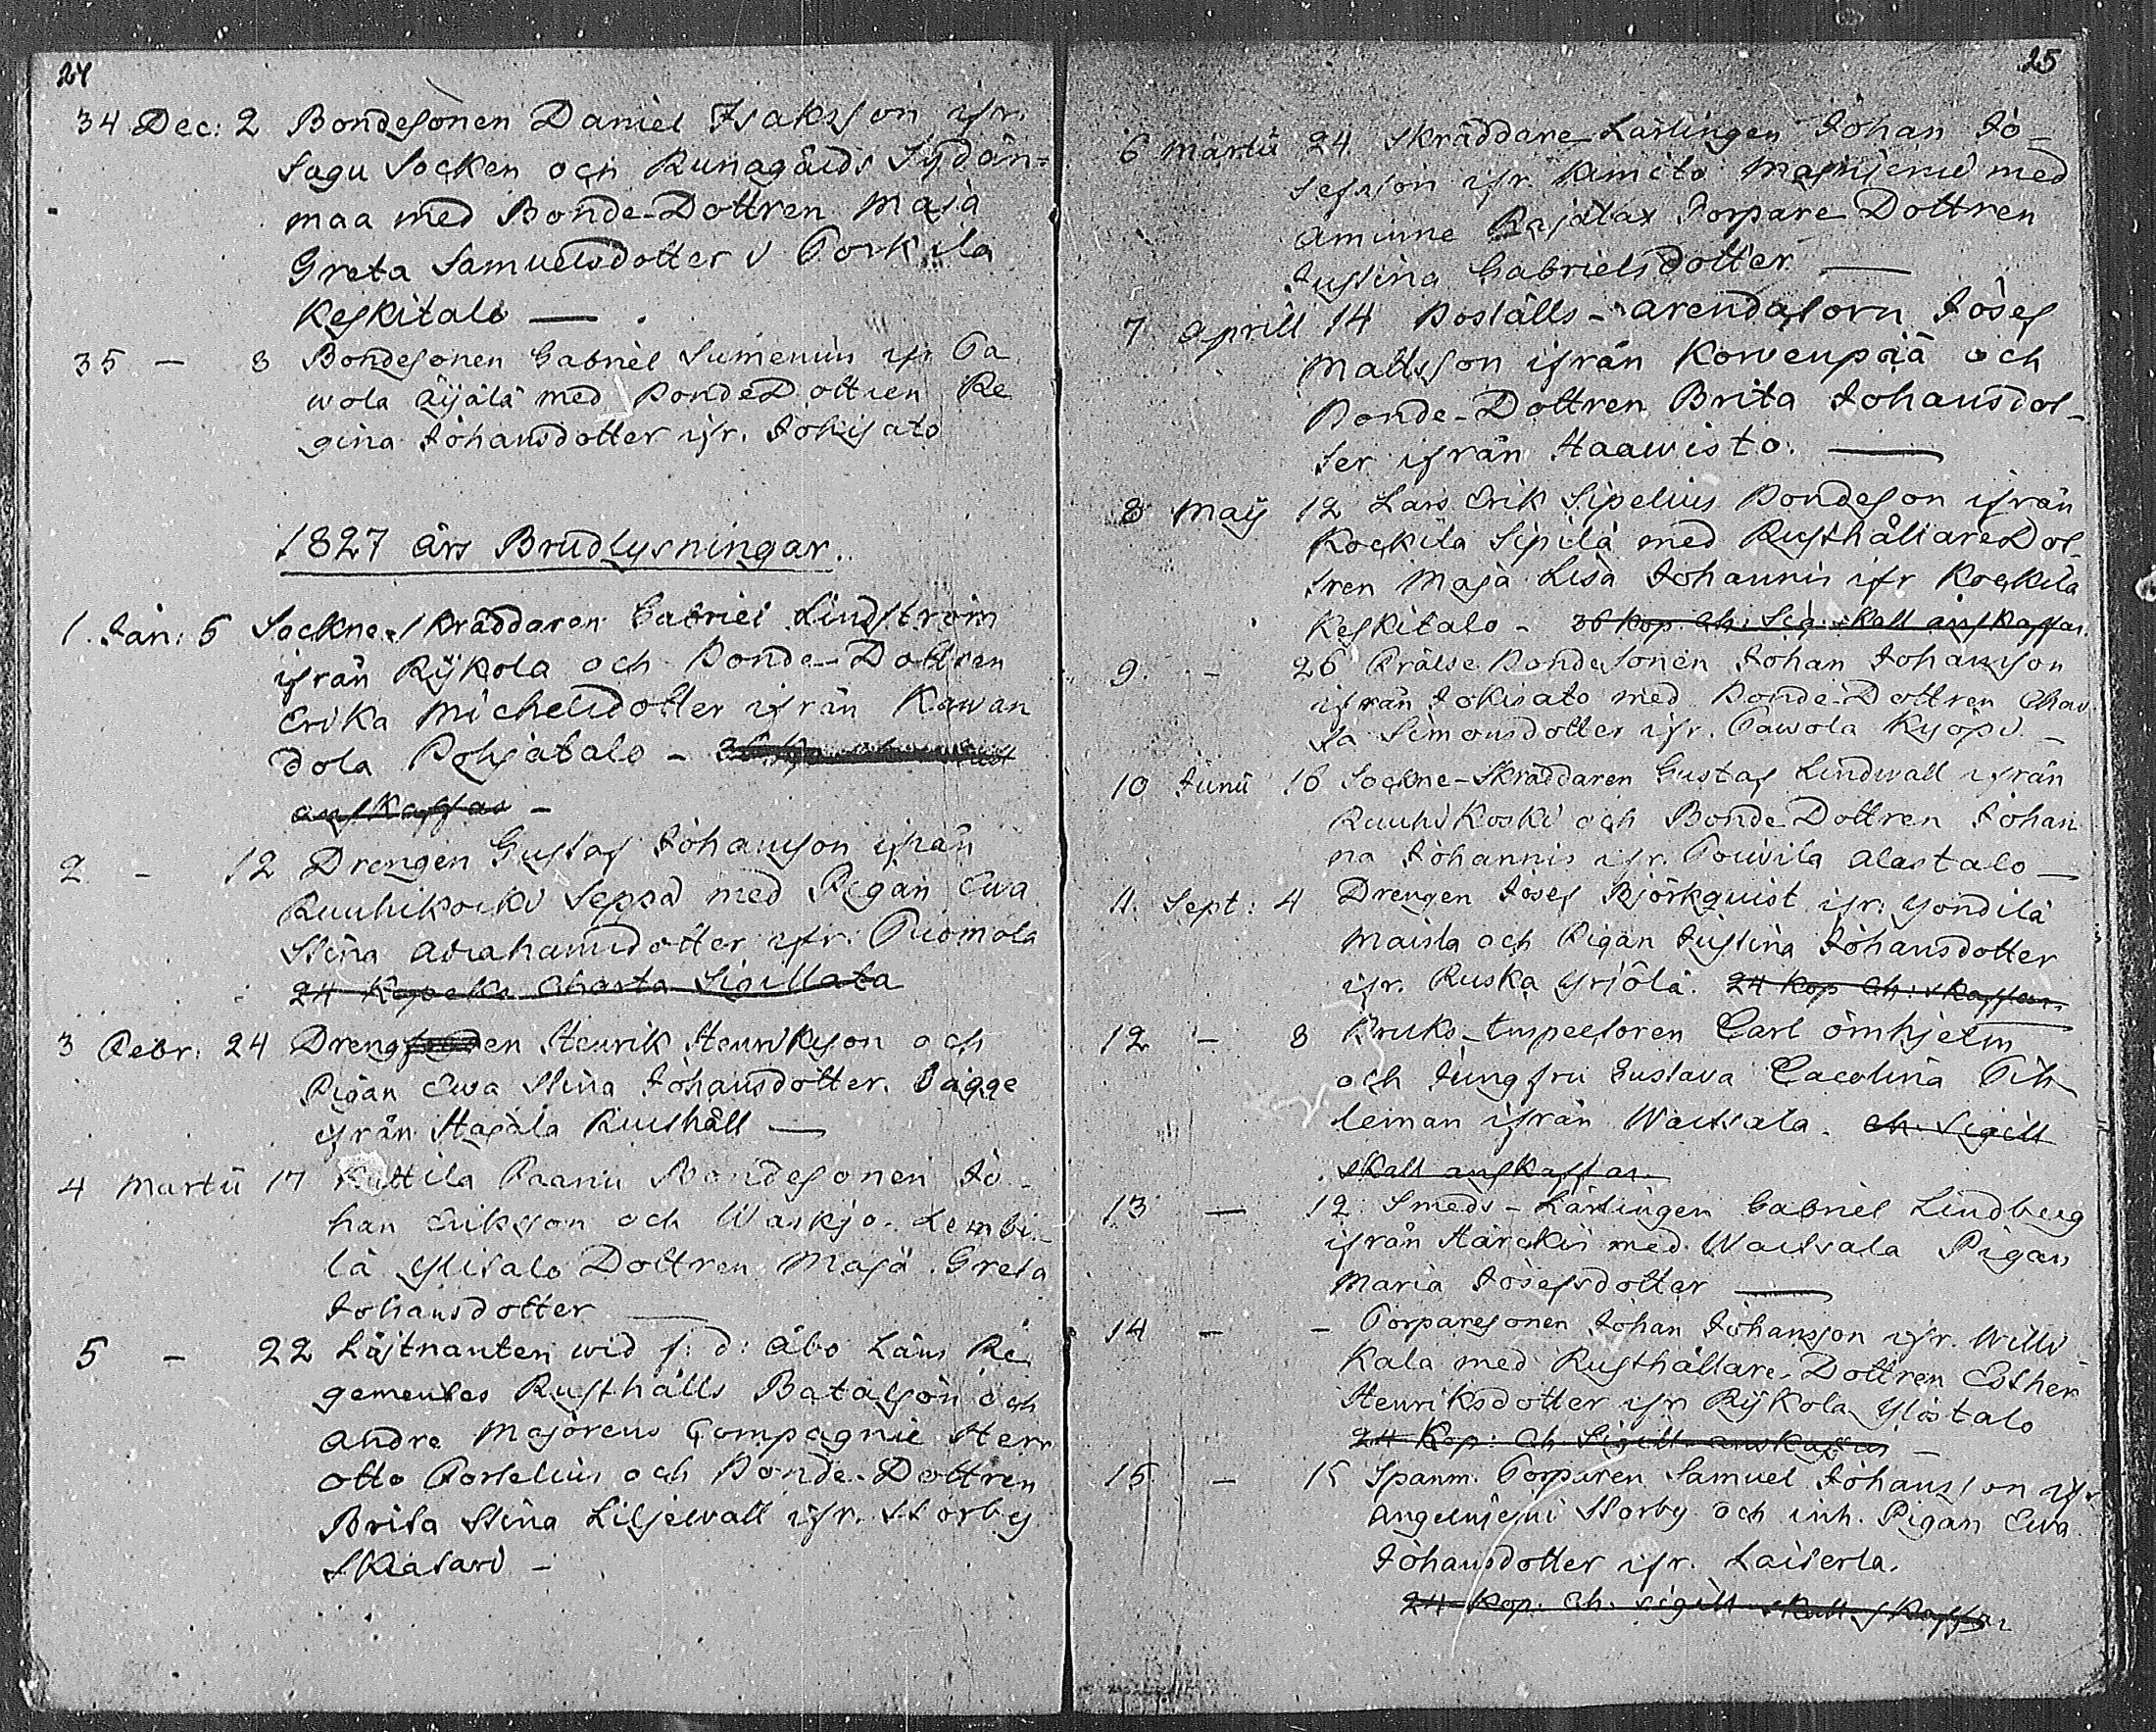 24
34 Dec: 2 Bondesonen Daniel Isaksson ifr.
Sagu Socken och Runagårds Sydän=
maa med Bonde-Dottren Maja
Greta Samuelsdotter i Torkila
Keskitalo —
35 — 3 Bondesonen Gabriel Sumenius ifr Ta
wola Äijälä med BondeDottren Re
gina Johansdotter ifr. Jokisato
1827 års Brudlysningar.
1. Jan: 5 Sockne-Skräddaren Gabriel Lindström
ifrån Rijkola och Bonde-Dottren
Erika Michelsdotter ifrån Kawan
dola Pohjatalo -
anskaffas -
2 - 12 Drengen Gustaf Johansson ifrån
Ruuhikoski Seppä med Pigan Ewa
Stina Abrahamsdotter ifr. Tuomola
24 Kopeks Charta Sigillata
3 Febr: 24 Drengen Henrik Henriksson och
Pigan Ewa Stina Johansdotter. bägge
ifrån Hajala Rusthåll —
4 Martii 17 Paanu Bondesonen Jo-
han Eriksson och Waskjo- Lembi-
lä Ylitalo Dottren Maja Greta
Johansdotter —
5 - 22 Löjtnanten wid f: d: Åbo Läns Re-
gementes Rusthålls Bataljon och
andre Majorens Compagnie Herr
Otto Forselius och Bonde-Dottren
Brita Stina Liljewall ifr. Storby
Skatari -
25
6 Martii 24 Skräddare Lärlingen Johan Jo-
sefsson ifr. Kimito med
Aminne Rajalax Torpare Dottren
Justina Gabrielsdotter —
7 Aprill 14 Boställs-arendatorn Josef
Mattsson ifrån Korvenpää och
Bonde-Dottren Brita Johansdot-
ter ifrån Haawisto. —
8 Maij 12 Lars Erik Sipelius Bondeson ifrån
Koskila Sipilä med RusthållareDot-
tren Maja Lisa Johannis ifr Koskila
Keskitalo - 36 kop. Ch. Sig. skall anskaffas.
9. - 26 Frälse Bondesonen Johan Johansson
ifrån Jokisato med Bonde-Dottren Chris
ta Simonsdotter ifr. Tawola Kyöpi -
10 Junii 16 Sockne-Skräddaren Gustaf Lindwall ifrån
Ruuhikoski och Bonde Dottren Johan
na Johannis ifr. Touvila Alastalo —
11. Sept: 4 Drengen Josef Björkquist ifr. Yöndilä
Maisla och Pigan Justina Johansdotter
ifr. Ruska Yrjölä. 24 kop Ch: skaffas.
12 - 8 Bruks-Inspectoren Carl Örnhjelm
och Jungfru Gustava Carolina Tih-
leman ifrån Waisala. Ch. Sigill
skall anskaffas.
13 — 12 Smeds-Lärlingen Gabriel Lindberg
ifrån Härckis med Waisvala Pigan
Maria Josefsdotter —
14 - - Torparesonen Johan Johansson ifr. Willi
kala med Rusthållare-Dottren Esther
Henriksdotter ifr Rijkola Ylistalo
24 Kop: Ch. Sigill anskaffas -
15 - 15 Spanm. Torparen Samuel Johansson ifr
Angelniemi Storby och inh. Pigan Ewa
Johansdotter ifr. Laiterla.
24 Kop. Ch. sigill skall skaffas